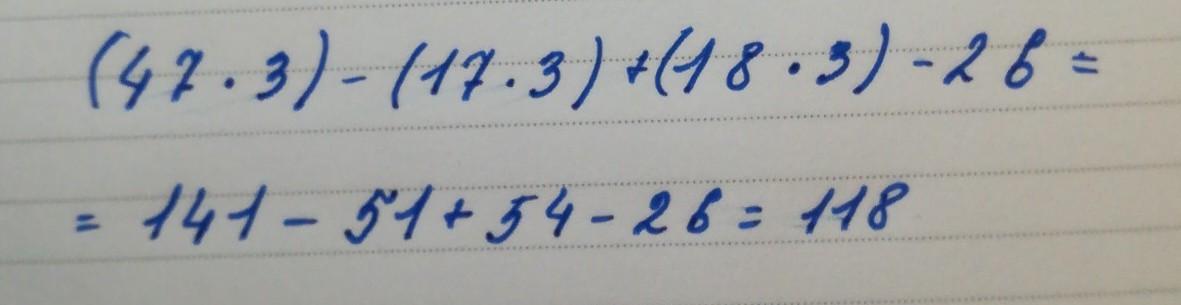 (47 · 3) - (17 · 3) + (18 · 3) - 26 =
= 141 - 51 + 54 - 26 = 118